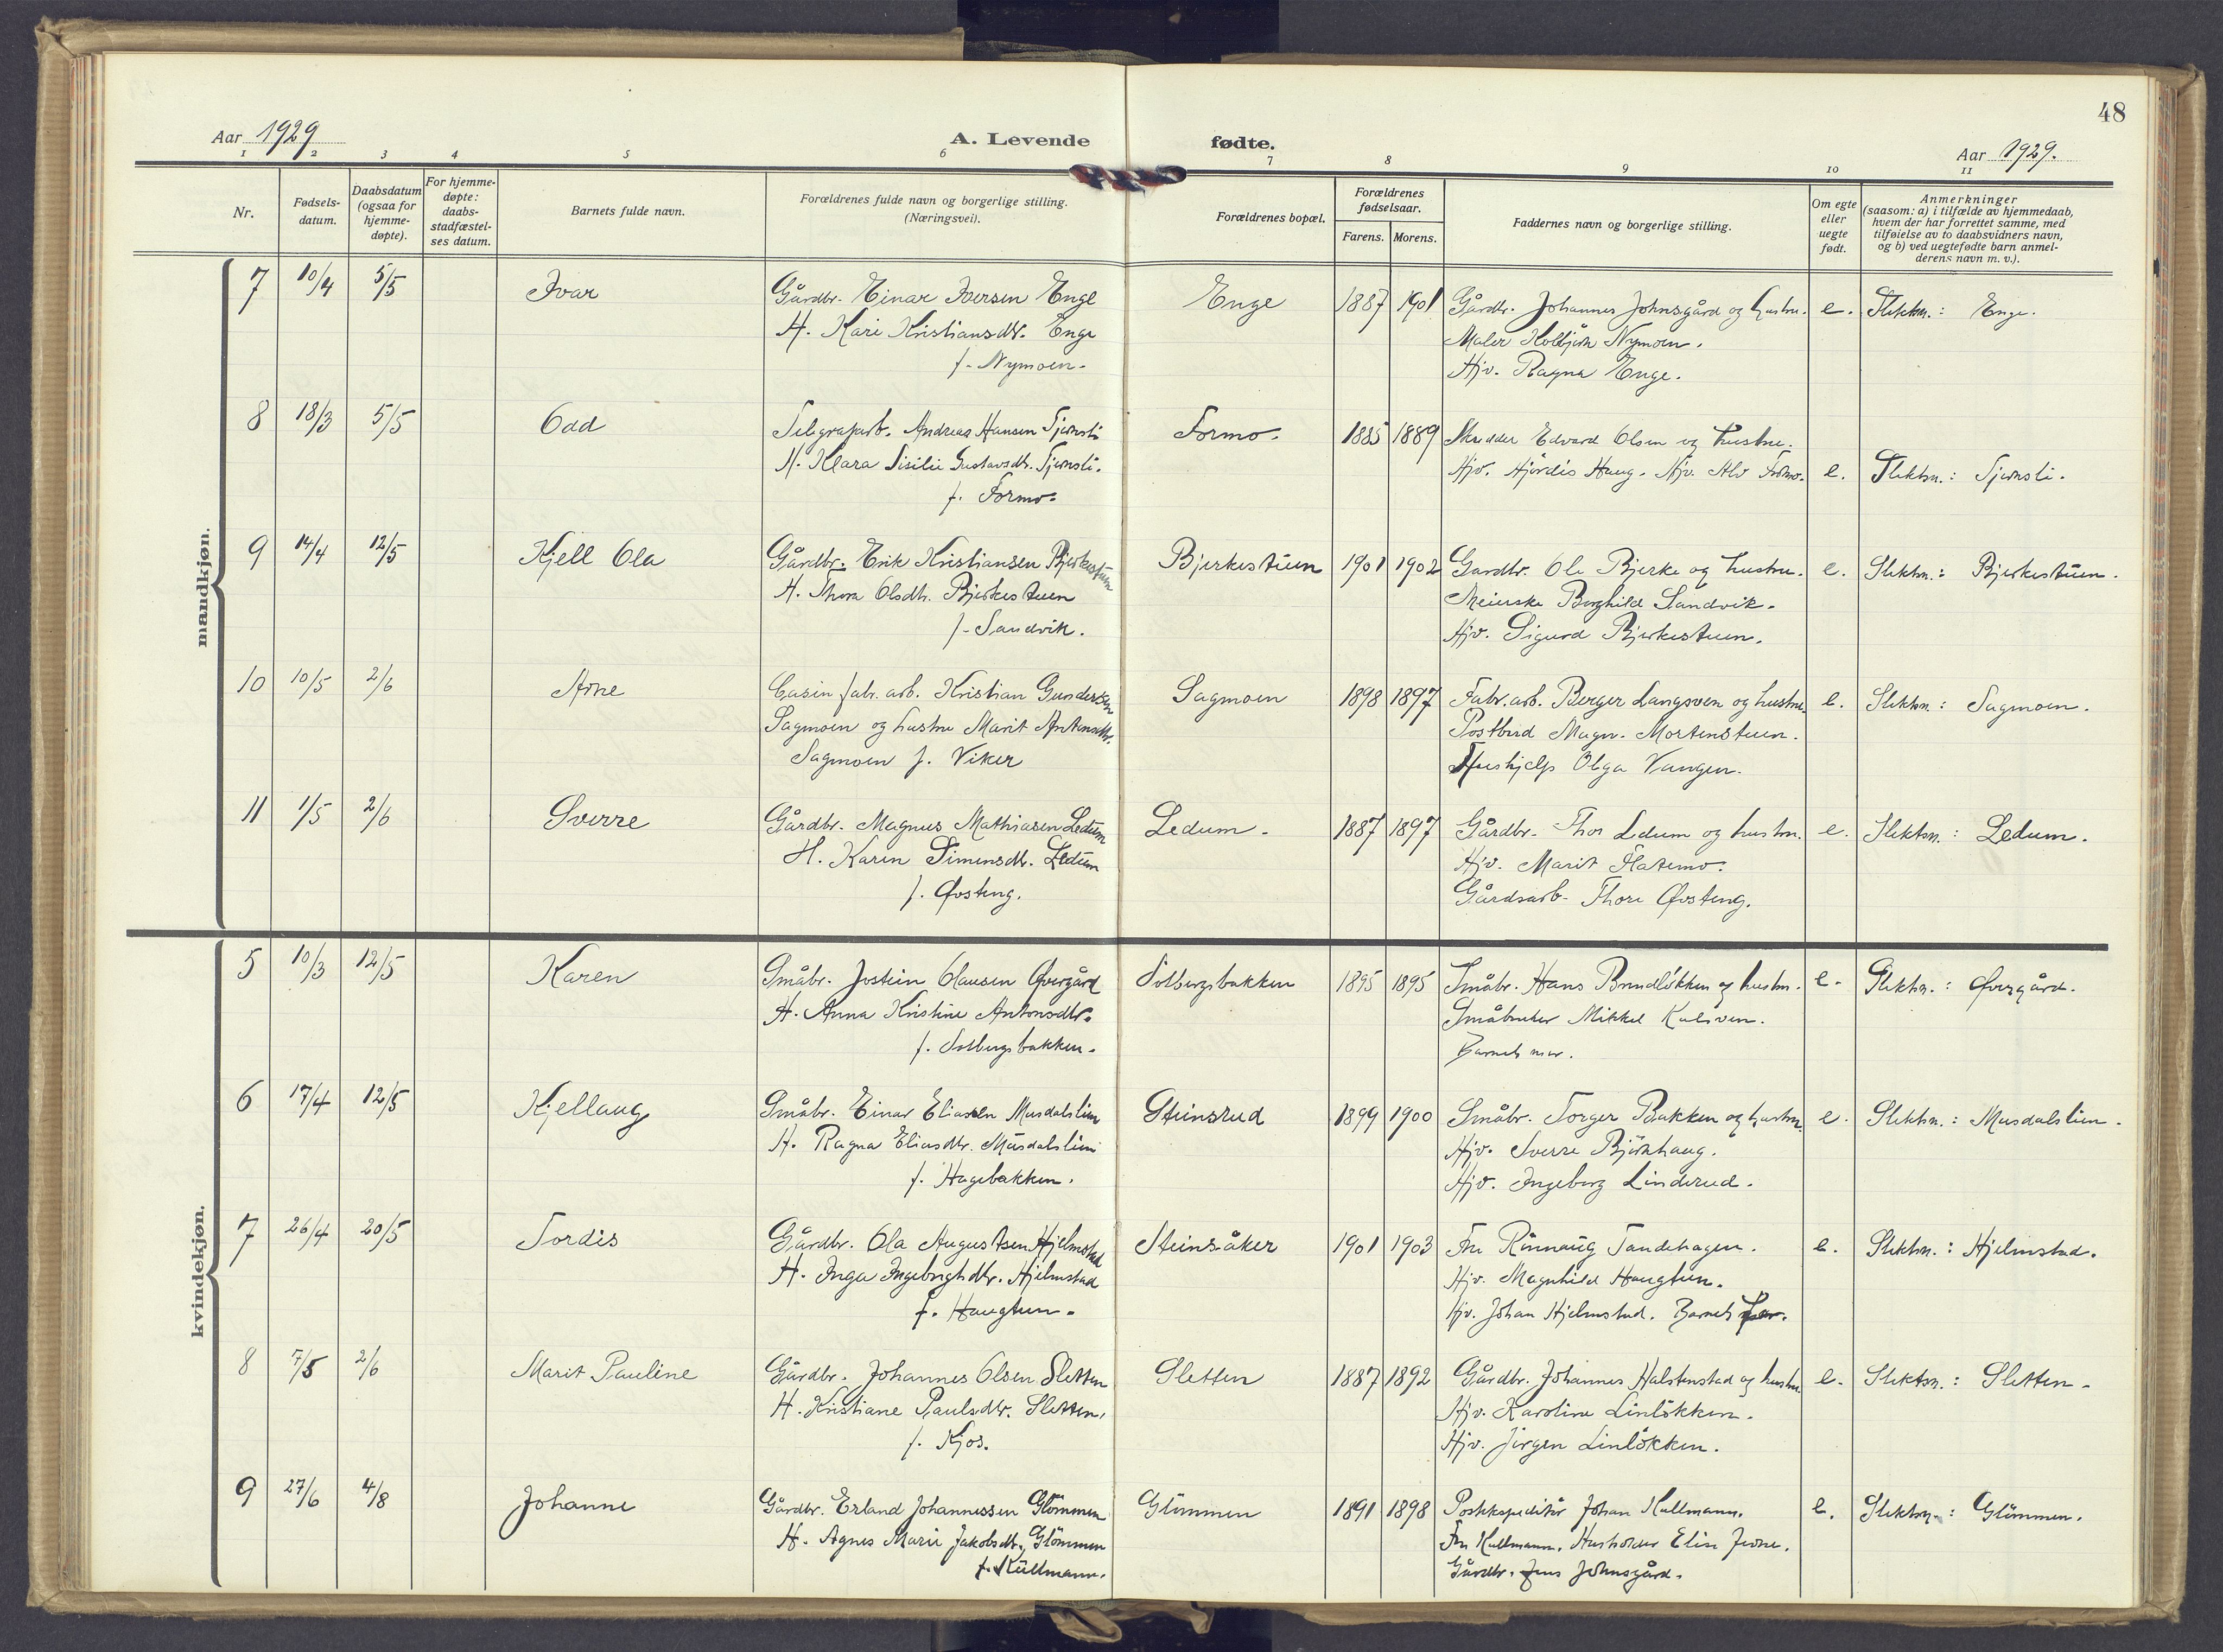 48
Aar 1929
A. Levende fødte.
Aar 1929.
1 2 3 4 5 6 7 8 9 10 11
Nr.
Fødsels-
datum.
Daabsdatum
(ogsaa for
hjemme-
døpte).
For hjemme-
døpte:
daabs-
stadfæstel-
ses datum.
Barnets fulde navn.
Forældrenes fulde navn og borgerlige stilling.
(Næringsvei).
Forældrenes bopæl.
Forældrenes
fødselsaar.
Farens. Morens.
Faddernes navn og borgerlige stilling.
Om egte
eller
uegte
født.
Anmerkninger
(saasom: a) i tilfælde av hjemmedaab,
hvem der har forrettet samme, med
tilføielse av to daabsvidners navn,
og b) ved uegtefødte barn anmel-
derens navn m. v.).
mandkjøn.
7 10/4 5/5 Ivar Gårdbr. Einar Iversen Enge Enge 1887 1901 Gårdbr. Johannes Johnsgård og hustru. e. Slektsn.: Enge.
H. Kari Kristiansdtr. Enge Maler Kolbjørn Nymoen.
f. Nymoen. Hjv. Ragna Enge.
8 18/3 5/5 Odd Telegrafarb. Andreas Hansen Tjernsli Formo. 1885 1889 Skredder Edvard Olsen og hustru.
H. Klara Sisilie Gustavsdtr. Tjernsli. Hjv. Hjördis Haug. Hjv. Alv Formo. e. Slektsn.: Tjernsli.
f. Formo.
9 14/4 12/5 Kjell Ola Gårdbr. Erik Kristiansen Bjerkestuen Bjerkestuen 1901 1902 Gardbr. Ole Bjerke og hustru. e. Slektsn.: Bjerkestuen.
H. Thora Olsdtr. Bjerkestuen Meierske Borghild Sandvik.
f. Sandvik. Hjv. Sigurd Bjerkestuen.
10 10/5 2/6 Arne Casin fabr. arb. Kristian Gundersen Sagmoen 1898 1897 Fabr. arb. Berger Langsven og hustru. e. Slektsn: Sagmoen.
Sagmoen og hustru Marit Antonsdtr. Postbud Magn. Mortenstuen.
Sagmoen f. Viker Hushjelp Olga Vangen.
11 1/5 2/6 Sverre Gårdbr. Magnus Mathiasen Ledum Ledum. 1887 1897 Gårdbr. Thor Ledum og hustru. e. Slektsn.: Ledum.
H. Karen Simensdtr. Ledum Hjv. Marit Flatemo.
f. Øvsteng. Gårdsarb. Thore Øvsteng.
kvindekjøn.
5 10/3 12/5 Karen Småbr. Jostein Olausen Øvergård Solbergsbakken 1895 1895 Småbr. Hans Brudløkken og hustru. e. Slektsn.: Øvergård.
H. Anna Kristine Antonsdtr. Småbruker Mikkel Kulsven.
f. Solbergsbakken. Barnets mor.
6 17/4 12/5 Kjellaug Småbr. Einar Eliassen Musdalslien Steinsrud 1899 1900 Småbr. Torger Bakken og hustru. e. Slektsn.: Musdalslien.
H. Ragna Eliasdtr. Musdalslien Hjv. Sverre Björnhaug.
f. Hagebakken. Hjv. Ingeborg Linderud.
7 26/4 20/5 Tordis Gårdbr. Ola Augustsen Hjelmstad Steinsåker 1901 1903 Fru Rönnaug Tandehagen. e. Slektsn.: Hjelmstad.
H. Inga Ingebrigtsdtr. Hjelmstad Hjv. Magnhild Haugtun.
f. Haugtun. Hjv. Johan Hjelmstad. Barnets far.
8 7/5 2/6 Marit Pauline Gårdbr. Johannes Olsen Sletten Sletten 1887 1892 Gårdbr. Johannes Halstenstad og hustru e. Slektsn.: Sletten.
H. Kristiane Paulsdtr. Sletten, Hjv. Karoline Linløkken.
f. Kjos. Hjv. Jörgen Linløkken.
9 27/6 4/8 Johanne Gårdbr. Erland Johannessen Glömmen Glömmen 1891 1898 Postekspeditör Johan Kullmann. e. Slektsn.: Glömmen.
H. Agnes Marie Jakobsdtr. Glömmen Fru Kullmann. Husholder Elise
f. Kullmann. Gårdbr. Jens Johnsgård.